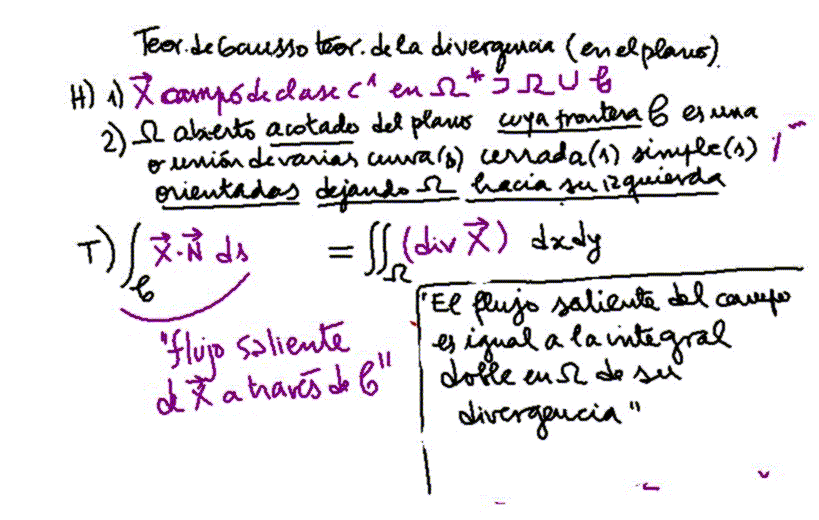 Teor. de Gauss o teor. de la divergencia (en el plano)
H) 1) X⃗ campo de clase C¹ en Ω* ⊃ Ω ∪ 𝒞
2) Ω abierto acotado del plano cuya frontera 𝒞 es una
o unión de varias curva(s) cerrada(s) simple(s)
orientadas dejando Ω hacia su izquierda
T) ∫_𝒞 X⃗·N⃗ ds = ∬_Ω (div X⃗) dxdy
"flujo saliente
de X⃗ a través de 𝒞"
"El flujo saliente del campo
es igual a la integral
doble en Ω de su
divergencia"